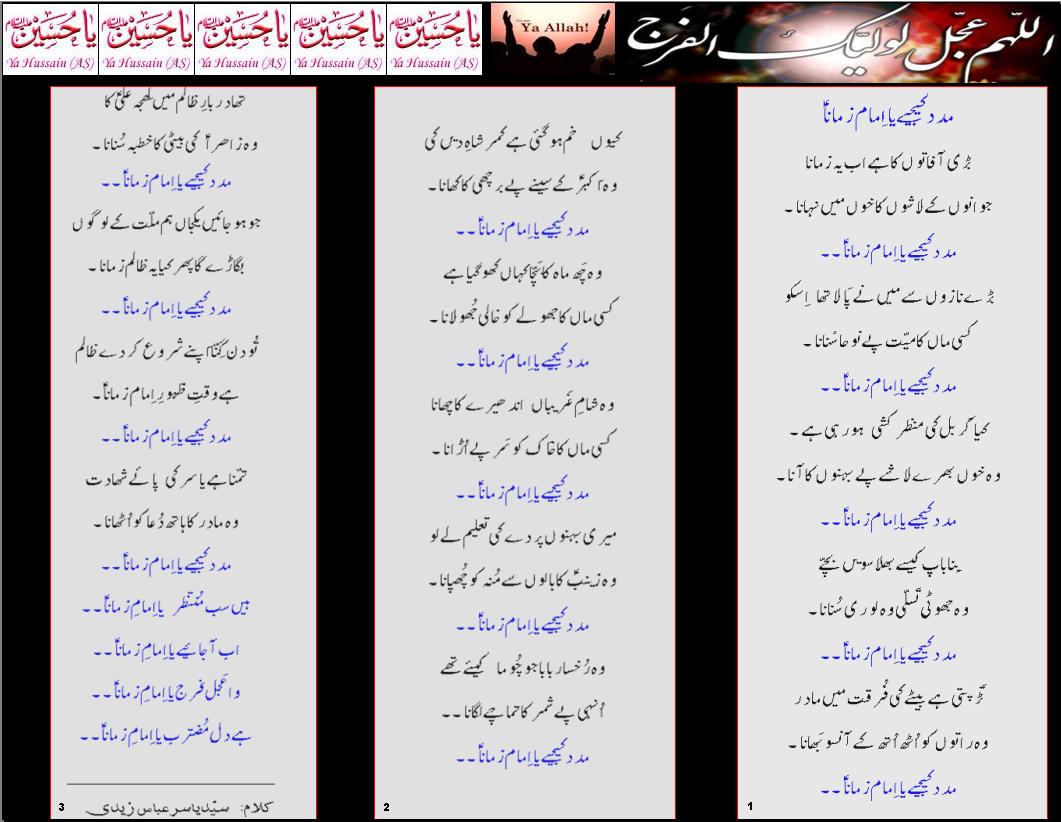 یا حُسینؑ
Ya Hussain (AS)
یا حُسینؑ
Ya Hussain (AS)
یا حُسینؑ
Ya Hussain (AS)
یا حُسینؑ
Ya Hussain (AS)
یا حُسینؑ
Ya Hussain (AS)
Ya Allah!
اللّٰهم عجّل لوليّك الفرج
مدد کیجیے یا اِمام زماناؑ
بڑی آفاتوں کا ہے اب یہ زمانا
جوانوں کے لاشوں کا خوں میں نہانا۔
مدد کیجیے یا اِمام زماناؑ۔۔
بڑے نازوں سے میں نے پَالا تھا اِسکو
کسی ماں کا میّت پے نوحا سُنانا۔
مدد کیجیے یا اِمام زماناؑ۔۔
کیا کَربل کی منظر کشی ہو رہی ہے۔
وہ خوں بھرے لاشے پے بہنوں کا آنا۔
مدد کیجیے یا اِمام زماناؑ۔۔
بِنا باپ کیسے بھلا سویں بچّے
وہ جھوٹی تسلّی وہ لوری سُنانا۔
مدد کیجیے یا اِمام زماناؑ۔۔
تڑپتی ہے بیٹے کی فُرقت میں مادر
وہ راتوں کو اُٹھ اُتھ کے آنسو بَھانا۔
مدد کیجیے یا اِمام زماناؑ۔۔
1
کیوں خم ہو گئی ہے کمر شاہِ دیں کی
وہ اکبرؑ کے سینے پے برچھی کا کھانا۔
مدد کیجیے یا اِمام زماناؑ۔۔
وہ چَھ ماہ کا بَچّا کہاں کھو گیا ہے
کسی ماں کا جھولے کو خالی جُھولانا۔
مدد کیجیے یا اِمام زماناؑ۔۔
وہ شامِ غَریباں اندھیرے کا چھانا
کسی ماں کا خاک کو سَر پے اُڑانا۔
مدد کیجیے یا اِمام زماناؑ۔۔
میری بہنوں پردے کی تعلیم لے لو
وہ زینبؑ کا بالوں سے مُنہ کو چُھپانا۔
مدد کیجیے یا اِمام زماناؑ۔۔
وہ رُخسار بابا جو چُوما کیئے تھے
اُنہی پے شمر کا تماچے لگانا۔۔
مدد کیجیے یا اِمام زماناؑ۔۔
2
تھا دربارِ ظالم میں لھجہ علیؑ کا
وہ زاھراؑ کی بیٹی کا خطبہ سُنانا۔
مدد کیجیے یا اِمام زماناؑ۔۔
جو ہو جائیں یکجاں ہم ملّت کے لوگوں
بگاڑے گا پھر کیا یہ ظالم زمانا۔
مدد کیجیے یا اِمام زماناؑ۔۔
تُو دن گِننا اپنے شروع کر دے ظالم
ہے وقتِ ظہورِ اِمام زماناؑ۔
مدد کیجیے یا اِمام زماناؑ۔۔
تمّنا ہے یاسر کی پائے شھادت
وہ مادر کا ہاتھ دُعا کو اُٹھانا۔
مدد کیجیے یا اِمام زماناؑ۔۔
ہیں سب مُنتظر یا اِمامِ زماناؑ۔۔
اب آجائیے یا اِمامِ زماناؑ۔۔
واعَجل فرج یا اِمامِ زماناؑ۔۔
ہے دل مُضترب یا اِمامِ زماناؑ۔۔
کلام: سیّد یاسر عباس زیدی
3